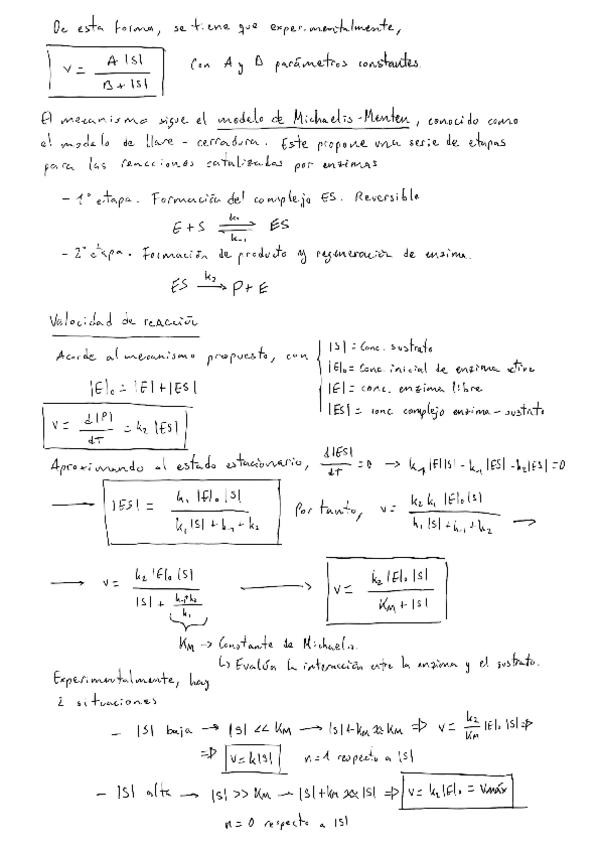 De esta forma, se tiene que experimentalmente,
v = A|S| / B+|S| Con A y B parámetros constantes.
El mecanismo sigue el modelo de Michaelis-Menten, conocido como
el modelo de llave-cerradura. Este propone una serie de etapas
para las reacciones catalizadas por enzimas
- 1ª etapa. Formación del complejo ES. Reversible
E + S ⇌ ES k₁ k₋₁
- 2ª etapa. Formación de producto y regeneración de enzima.
ES →k₂ P + E
Velocidad de reacción
Acorde al mecanismo propuesto, con
|S| = Conc. sustrato
|E|₀ = Conc. inicial de enzima
|E| = conc. enzima libre
|ES| = conc complejo enzima-sustrato
|E|₀ = |E| + |ES|
v = d|P|/dT = k₂|ES|
Aproximando al estado estacionario, d|ES|/dT = 0 → k₁|E||S| - k₋₁|ES| - k₂|ES| = 0
→ |ES| = k₁|E|₀|S| / k₁|S| + k₋₁ + k₂ Por tanto, v = k₂k₁|E|₀|S| / k₁|S| + k₋₁ + k₂ →
→ v = k₂|E|₀|S| / |S| + (k₋₁+k₂)/k₁ → v = k₂|E|₀|S| / KM + |S|
KM → Constante de Michaelis.
↳ Evalúa la interacción entre la enzima y el sustrato.
Experimentalmente, hay
2 situaciones
- |S| baja → |S| << KM → |S| + KM ≈ KM ⇒ v = k₂/KM |E|₀|S| ⇒
⇒ v = k|S| n=1 respecto a |S|
- |S| alta → |S| >> KM → |S| + KM ≈ |S| ⇒ v = k₂|E|₀ = Vmáx
n=0 respecto a |S|